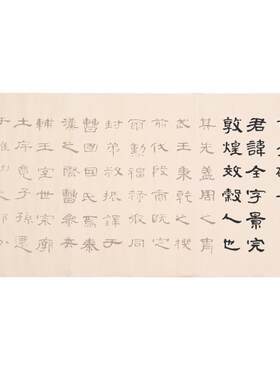 君諱全字景完
敦煌效穀人也
其先蓋周之胄
武王秉乾之機
翦伐殷商既定
爾勳福祿攸同
封弟叔振鐸于
曹國因氏焉秦
漢之際曹參夾
輔王室世宗廓
土斥竟子孫遷